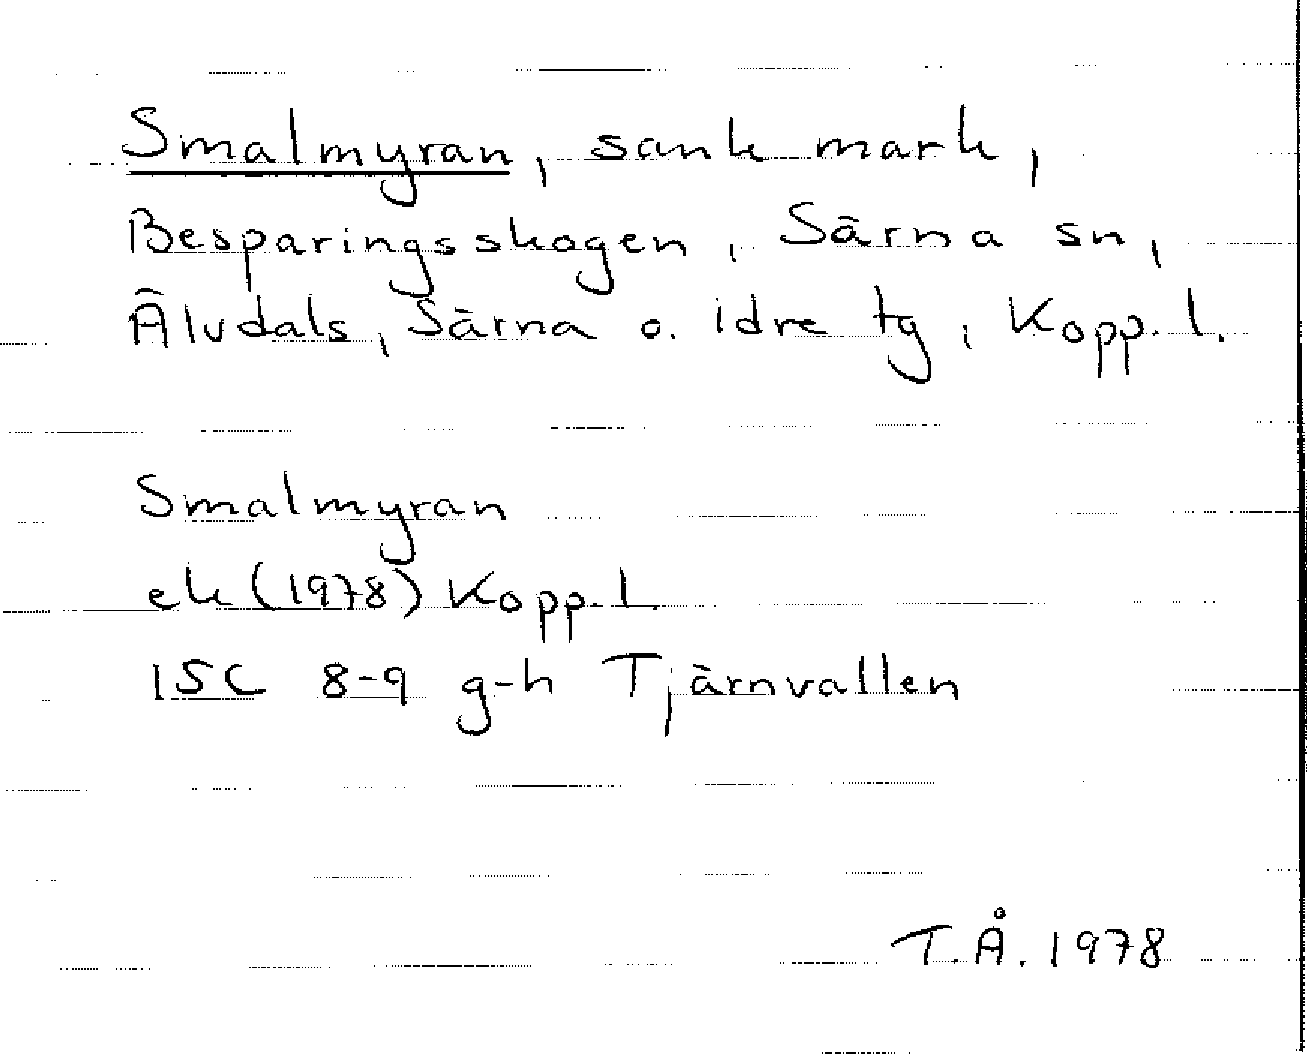 Smalmyran, sank mark,
Besparingsskogen, Särna sn,
Älvdals, Särna o. Idre tg, Kopp. l.
Smalmyran
ek (1978) Kopp. l.
15C 8-9 g-h Tjärnvallen
T.Å. 1978